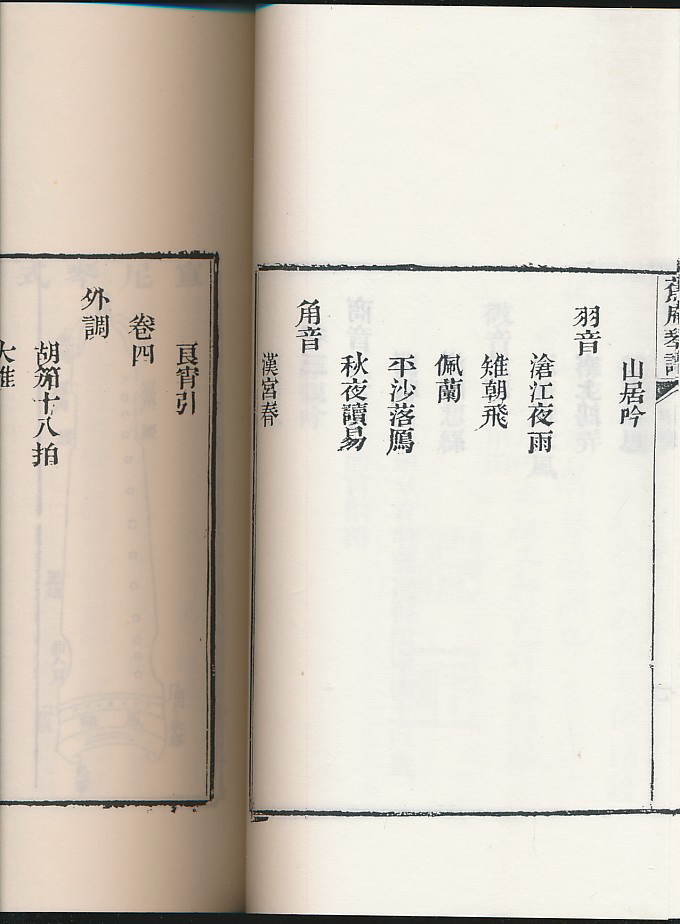 蕉庵琴譜
山居吟
羽音
滄江夜雨
雉朝飛
佩蘭
平沙落鴈
秋夜讀易
角音
漢宮春
良宵引
卷四
外調
胡笳十八拍